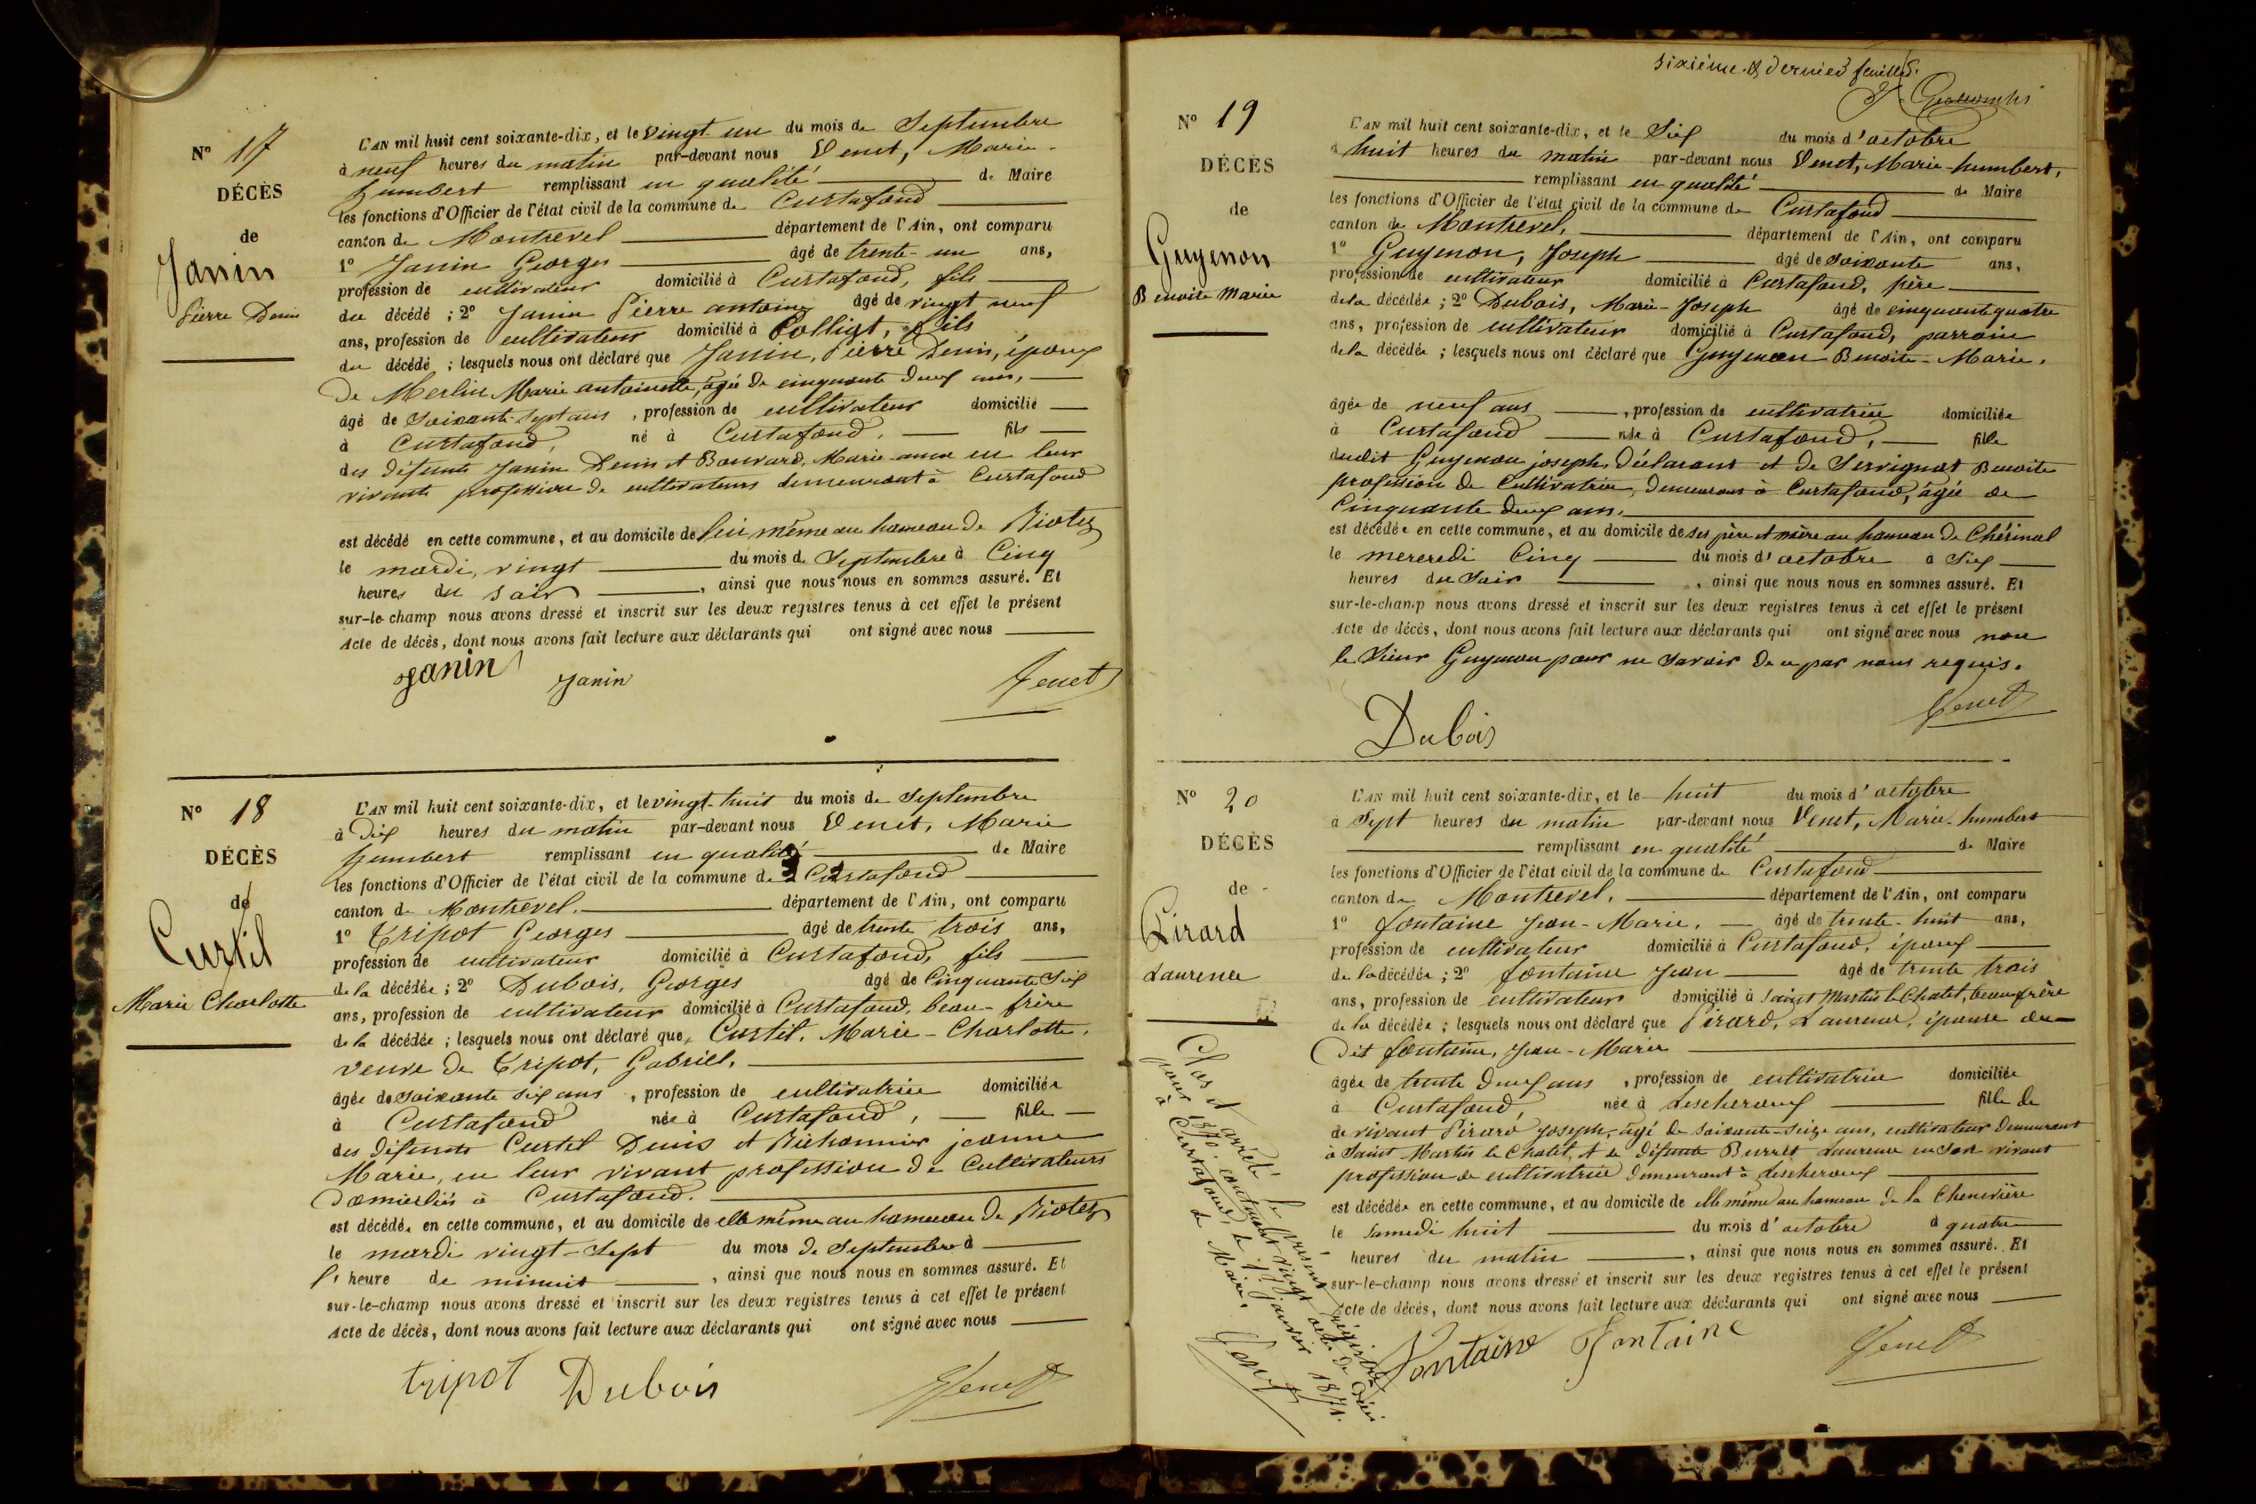 N° 17
DÉCÈS
de
Janin
Pierre Denis
L'AN mil huit cent soixante-dix, et le vingt un du mois de Septembre
à neuf heures du matin par-devant nous Venet, Marie-
humbert remplissant en qualité de Maire
les fonctions d'Officier de l'état civil de la commune de Curtafond
canton de Montrevel département de l'Ain, ont comparu
1° Janin Georges âgé de trente-un ans,
profession de cultivateur domicilié à Curtafond, fils
du décédé ; 2° Janin Pierre antoine âgé de vingt neuf
ans, profession de cultivateur domicilié à Polliat, fils
du décédé ; lesquels nous ont déclaré que Janin, Pierre Denis, époux
de Merlin Marie antoinette, âgée de cinquante deux ans,
âgé de Soixante-sept ans , profession de cultivateur domicilié
à Curtafond, né à Curtafond, fils
des défunts Janin Denis et Bouvard, Marie-anne en leur
vivants profession de cultivateurs demeurant à Curtafond
est décédé en cette commune, et au domicile de lui même au hameau de
le mardi, vingt du mois de Septembre à Cinq
heures du soir , ainsi que nous nous en sommes assuré. Et
sur-le-champ nous avons dressé et inscrit sur les deux registres tenus à cet effet le présent
Acte de décès, dont nous avons fait lecture aux déclarants qui ont signé avec nous
Janin Janin Venet
N° 18
DÉCÈS
de
Curtil
Marie Charlotte
L'AN mil huit cent soixante-dix, et le vingt-huit du mois de Septembre
à dix heures du matin par-devant nous Venet, Marie
humbert remplissant en qualité de Maire
les fonctions d'Officier de l'état civil de la commune de Curtafond
canton de Montrevel. département de l'Ain, ont comparu
1° Tripot Georges âgé de trente trois ans,
profession de cultivateur domicilié à Curtafond, fils
de la décédée ; 2° Dubois, Georges âgé de Cinquante Six
ans, profession de cultivateur domicilié à Curtafond, beau-frère
de la décédée ; lesquels nous ont déclaré que, Curtil, Marie-Charlotte,
veuve de Tripot, Gabriel,
âgée de soixante six ans , profession de cultivatrice domiciliée
à Curtafond née à Curtafond, fille
des défunts Curtil Denis et jeanne
Marie, en leur vivant profession de Cultivateurs
domiciliés à Curtafond.
est décédée en cette commune, et au domicile de elle même au hameau de
le mardi vingt-sept du mois de Septembre à
l'heure de minuit , ainsi que nous nous en sommes assuré. Et
sur-le-champ nous avons dressé et inscrit sur les deux registres tenus à cet effet le présent
Acte de décès, dont nous avons fait lecture aux déclarants qui ont signé avec nous
tripot Dubois Venet
Sixième & dernier feuillet.
N° 19
DÉCÈS
de
Guyenon
Benoite Marie
L'AN mil huit cent soixante-dix, et le Six du mois d'octobre
à huit heures du matin par-devant nous Venet, Marie-humbert,
remplissant en qualité de Maire
les fonctions d'Officier de l'état civil de la commune de Curtafond
canton de Montrevel, département de l'Ain, ont comparu
1° Guyenon, Joseph âgé de Soixante ans,
profession de cultivateur domicilié à Curtafond, père
de la décédée ; 2° Dubois, Marie-Joseph âgé de cinquante quatre
ans, profession de cultivateur domicilié à Curtafond, parrain
de la décédée ; lesquels nous ont déclaré que Guyenon Benoite-Marie,
âgée de neuf ans , profession de cultivatrice domiciliée
à Curtafond née à Curtafond, fille
dudit Guyenon joseph, déclarant et de Servignat Benoite
profession de Cultivatrice, demeurant à Curtafond, âgée de
Cinquante deux ans.
est décédée en cette commune, et au domicile de ses père et mère au hameau de Chérinal
le mercredi Cinq du mois d'octobre à Six
heures du soir , ainsi que nous nous en sommes assuré. Et
sur-le-champ nous avons dressé et inscrit sur les deux registres tenus à cet effet le présent
Acte de décès, dont nous avons fait lecture aux déclarants qui ont signé avec nous non
le Sieur Guyenon pour ne savoir de ce par nous requis.
Dubois Venet
N° 20
DÉCÈS
de
Pirard
Laurence
L'AN mil huit cent soixante-dix, et le huit du mois d'octobre
à Sept heures du matin par-devant nous Venet, Marie-humbert
remplissant en qualité de Maire
les fonctions d'Officier de l'état civil de la commune de Curtafond
canton de Montrevel. département de l'Ain, ont comparu
1° fontaine Jean-Marie, âgé de trente-huit ans,
profession de cultivateur domicilié à Curtafond, époux
de la décédée ; 2° fontaine Jean âgé de trente trois
ans, profession de cultivateur domicilié à Saint Martin le Chatel, beau frère
de la décédée ; lesquels nous ont déclaré que Pirard, Laurence, épouse du
dit fontaine, Jean-Marie
âgée de trente deux ans , profession de cultivatrice domiciliée
à Curtafond, née à Lescheroux fille de
de vivant Pirard Joseph, âgé de soixante-seize ans, cultivateur demeurant
à Saint Martin le Chatel, et de défunte Laurence en son vivant
profession de cultivatrice demeurant à Lescheroux
est décédée en cette commune, et au domicile de elle même au hameau de la Chenevière
le Samedi huit du mois d'octobre à quatre
heures du matin , ainsi que nous nous en sommes assuré. Et
sur-le-champ nous avons dressé et inscrit sur les deux registres tenus à cet effet le présent
Acte de décès, dont nous avons fait lecture aux déclarants qui ont signé avec nous
Fontaine fontaine Venet
Clos et arrêté le présent registre
pour 1870, contenant vingt actes de décès
à Curtafond, le 1er janvier 1871.
Le Maire,
Venet